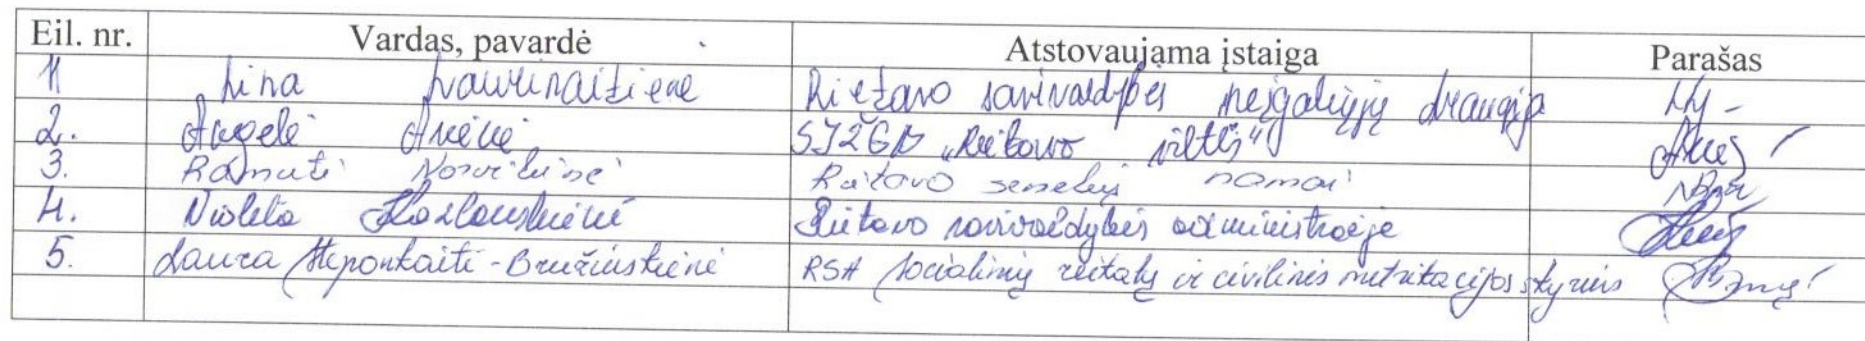 Eil. nr. Vardas, pavardė Atstovaujama įstaiga Parašas
1 Lina Laurinaitienė Rietavo savivaldybės neįgaliųjų draugija
2. Angelė SJŽGB „Rietavo viltis"
3. Ramutė Norvilienė Rietavo senelių namai
4. Violeta Kozlouskienė Rietavo savivaldybės administracija
5. Laura Steponkaitė-Bružinskienė RSA socialinių reikalų ir civilinės metrikacijos skyrius